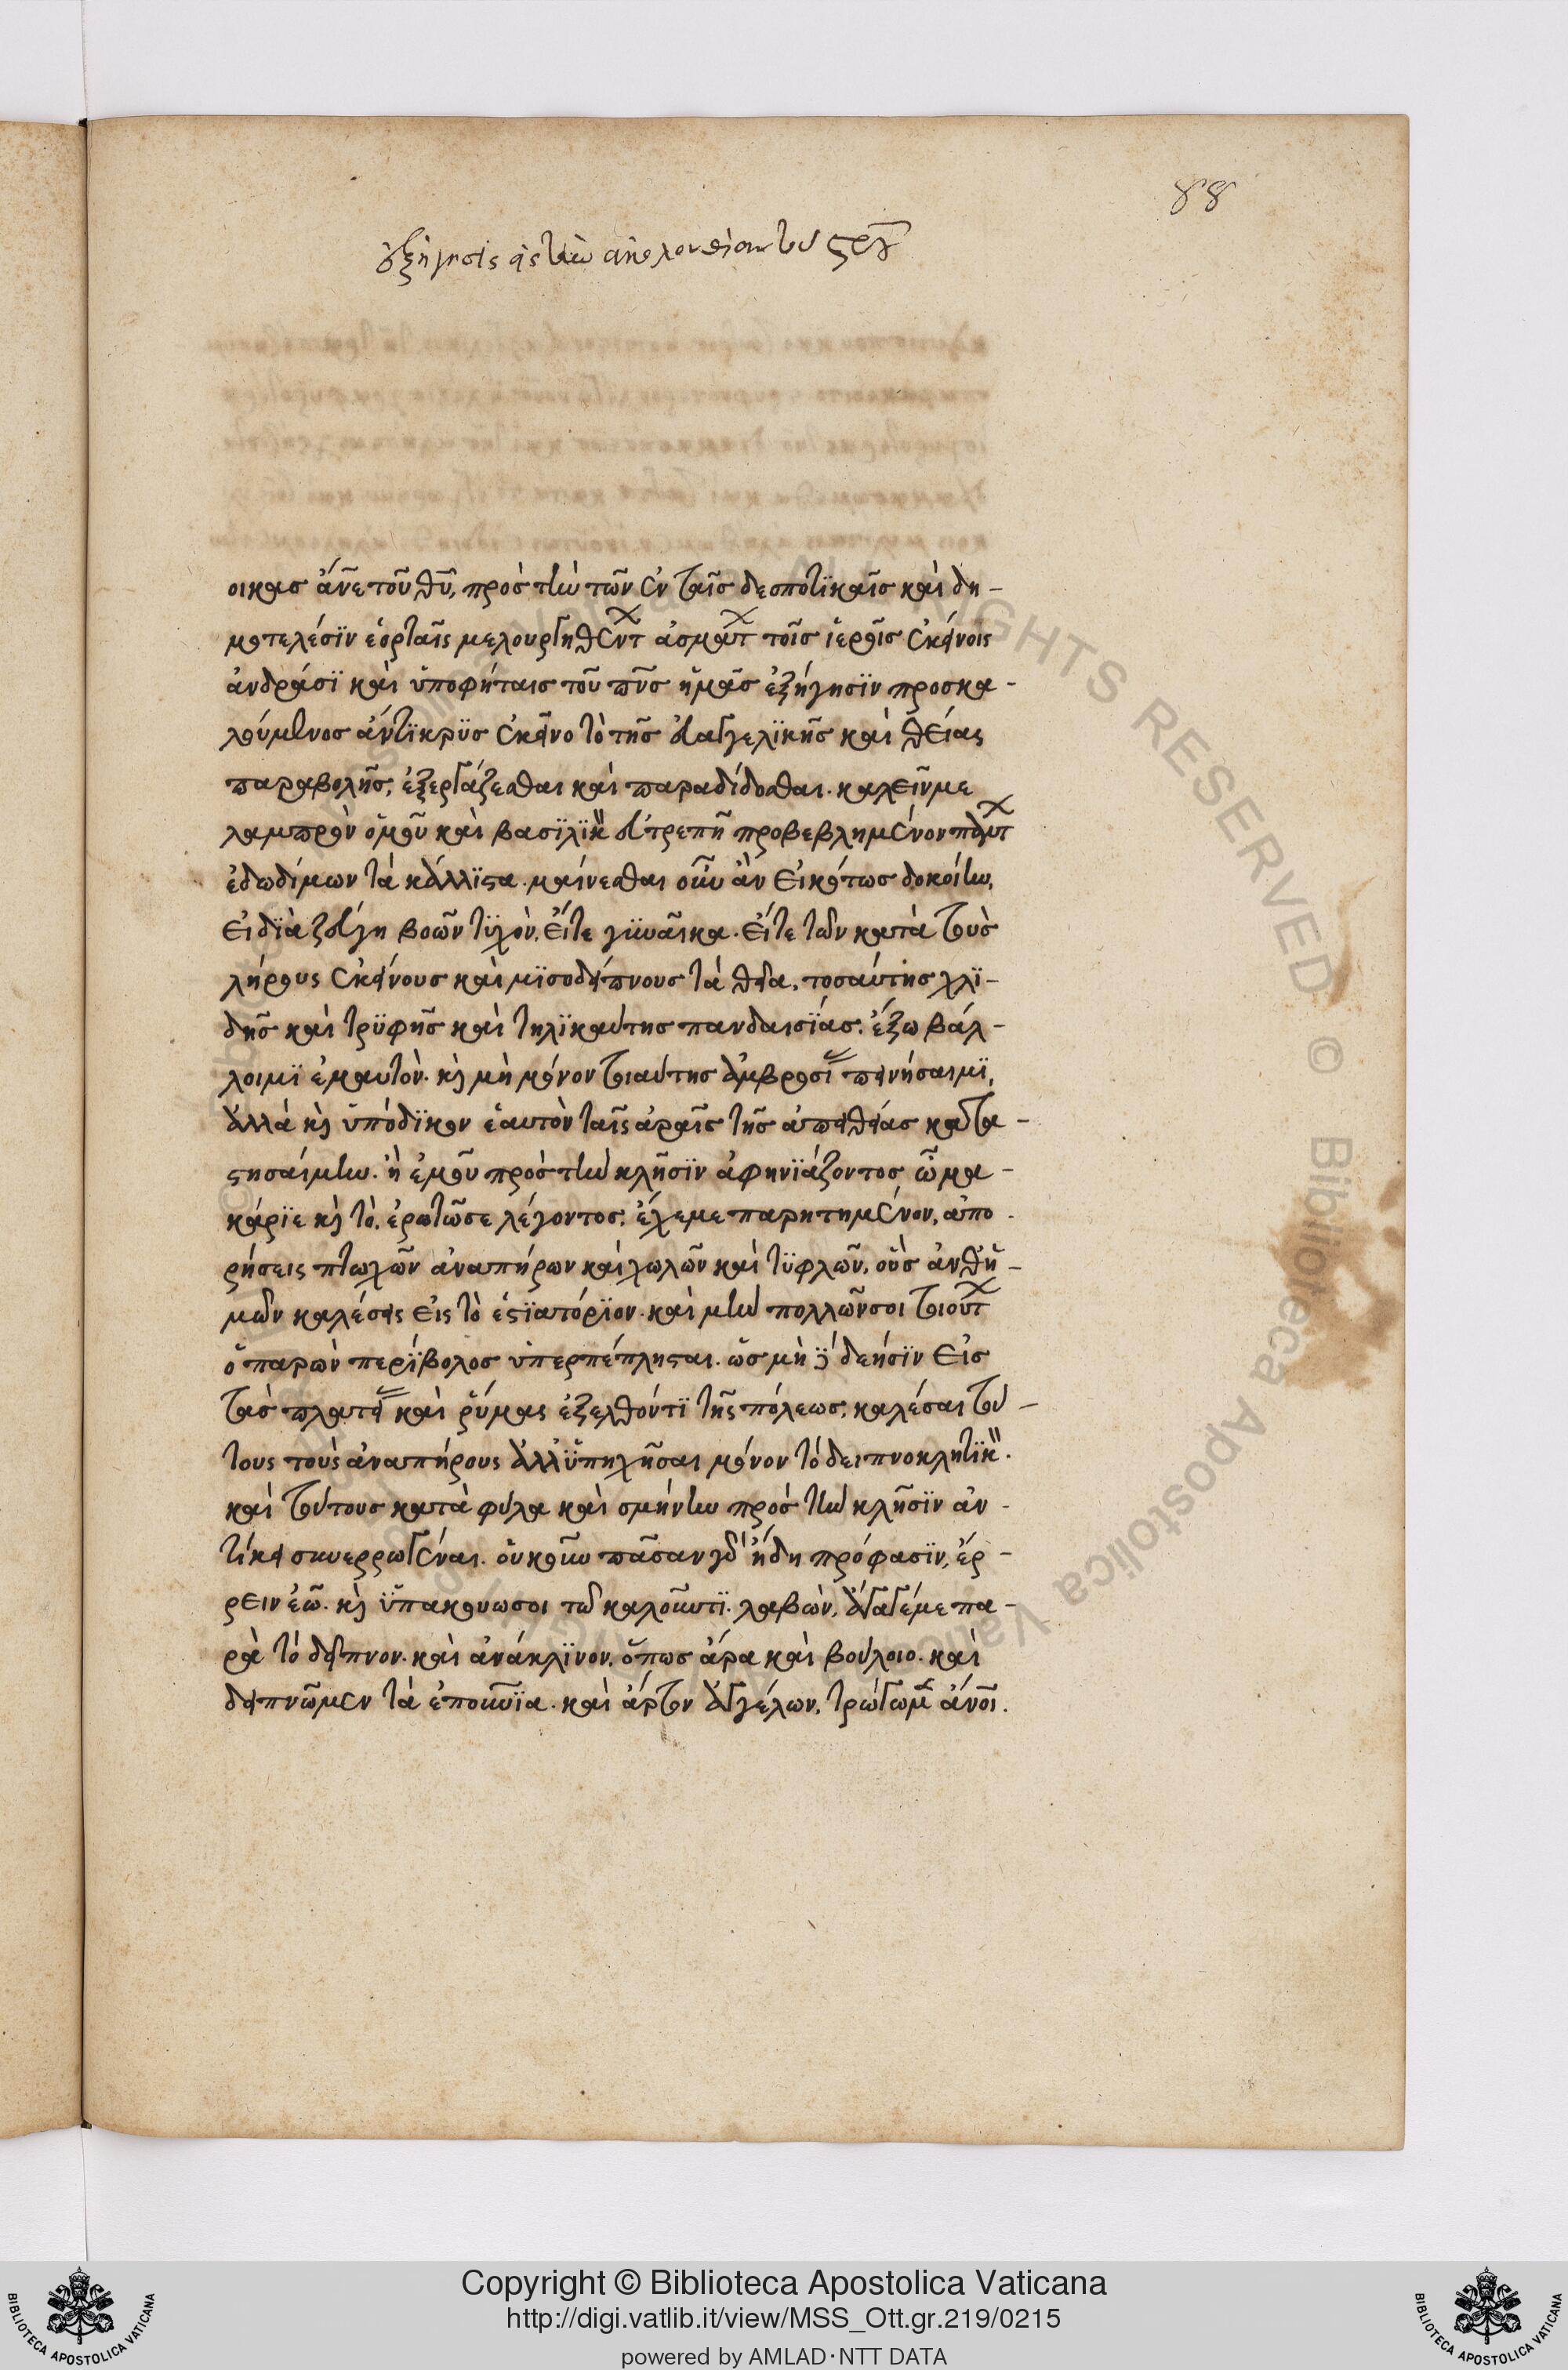 88
ἐξήγησις εἰς τὴν ἀκολουθίαν τοῦ
οικας ἄνε τοῦ θῦ, πρὸς τὴν τῶν ἐν ταῖς δεσποτϊκαῖς καὶ δη-
μοτελέσϊν ἑορταῖς μελουργηθέντ ἀσμάτ τοῖς ἱεροῖς ἐκείνοις
ἀνδράσϊ καὶ ὑποφήταις τοῦ πνς ἡμᾶς ἐξήγησϊν προσκα-
λούμενος ἀντϊκρϋς ἐκεῖνο τὸ τῆς εὐαγγελϊκῆς καὶ θείας
παραβολῆς, ἐξεργάζεσθαι καὶ παραδίδοσθαι. καλεῖν με
λαμπρὸν ὁμοῦ καὶ βασϊλϊκ εὐτρεπῆ προβεβλημένον πλουτ
ἐδωδίμων τὰ κάλλϊστα. μαίνεσθαι οὖν ἂν εἰκότως δοκοίην,
εἰ δϊὰ ζεύγη βοῶν τϋχὸν, εἴτε γϋναῖκα. εἴτε τῶν κατὰ τοὺς
λήρους ἐκείνους καὶ μϊσοδείπνους τὰ θεῖα, τοσαύτης χλϊ-
δῆς καὶ τρϋφῆς καὶ τηλϊκαύτης πανδαισϊάς. ἔξω βάλ-
λοιμϊ ἐμαυτὸν. κὶ μὴ μόνον τοιαύτης ἀμβροσί πεινήσαιμϊ,
ἀλλὰ κὶ ὑπόδϊκον ἑαυτὸν ταῖς ἀραῖς τῆς ἀπειθείας κατα-
στησαίμην. ἢ ἐμοῦ πρὸς τὴν κλῆσϊν ἀφηνϊάζοντος ὦ μα-
κάρϊε κὶ τὸ, ἐρωτῶ σε λέγοντος, ἔχε με παρητημένον, ἀπο
ρήσεις πτωχῶν ἀναπήρων καὶ χωλῶν καὶ τϋφλῶν, οὓς ἀνθ ἡ-
μῶν καλέσεις εἰς τὸ ἑστϊατόρϊον. καὶ μὴν πολλῶν σοι τοιοῦτ
ὁ παρὼν περϊβολος ὑπερπέπλησται. ὡς μὴ δεήσϊν εἰς
τὰς πλατεί καὶ ῥύμας ἐξελθόντϊ τῆς πόλεως, καλέσαι τού-
τους τοὺς ἀναπήρους ἀλλ ὑπηχῆσαι μόνον τὸ δειπνοκλητϊκ.
καὶ τούτους κατὰ φύλα καὶ σμήνην πρὸς τὴν κλῆσϊν αὐ-
τίκα συνερρωγέναι. οὐκοῦν πᾶσαν γδ ἤδη πρόφασϊν, ἔρ-
ρειν ἐῶ. κὶ ὑπακούω σοι τῶ καλοῦντϊ. λαβὼν, ἄγαγέ με πα-
ρὰ τὸ δεῖπνον. καὶ ἀνάκλϊνον, ὅπως ἄρα καὶ βούλοιο. καὶ
δειπνῶμεν τὰ ἐπουνϊα. καὶ ἄρτον ἀγγέλων, τρώγωμ ἄνοι.
Copyright © Biblioteca Apostolica Vaticana
http://digi.vatlib.it/view/MSS_Ott.gr.219/0215
powered by AMLAD·NTT DATA